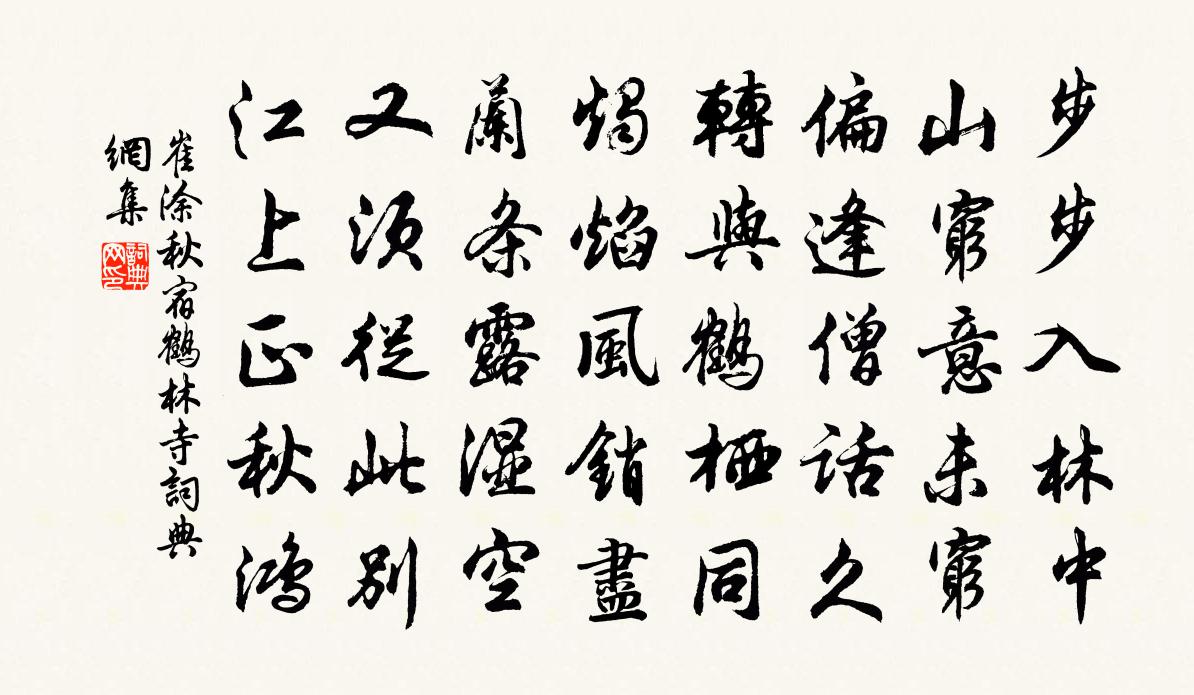 步步入林中
山窮意未窮
偏逢僧話久
轉與鶴栖同
燭焰風銷盡
蘭条露湿空
又須從此別
江上正秋鴻
崔涂秋宿鶴林寺詞典
網集
詞典
网印